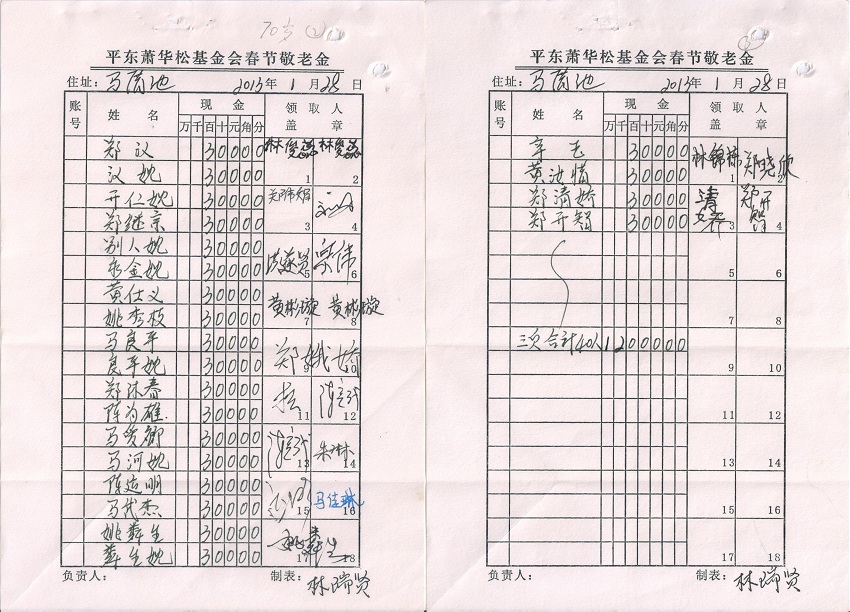 70岁 (2)
平东萧华松基金会春节敬老金
住址: 马茵池 2013年 1 月 28 日
账号 姓 名 现 金 领 取 人
万 千 百 十 元 角 分 盖 章
郑汉 30000 1 2
汉妣 30000
开仁妣 30000 3 4
郑继京 30000
别人妣 30000 5 6
来金妣 30000
黄仕义 30000 黄彬璇 7 黄彬璇 8
姚秀枝 30000
马良平 30000 郑娥娇 9 10
良平妣 30000
郑沐春 30000 11 12
陈为雄 30000
30000 13 朱琳 14
马河妣 30000
陈廷明 30000 15 马佳琳 16
马代杰 30000
姚舜生 30000 17 18
舜生妣 30000
负责人: 制表: 林瑞贤
平东萧华松基金会春节敬老金
住址: 马茵池 2013年 1 月 28 日
账号 姓 名 现 金 领 取 人
万 千 百 十 元 角 分 盖 章
30000 林锦 1 郑晓欣 2
黄汝惜 30000
郑清娇 30000 清娇 3 郑开智 4
郑开智 30000
5 6
7 8
三次合计40人 1200000
9 10
11 12
13 14
15 16
17 18
负责人: 制表: 林瑞贤